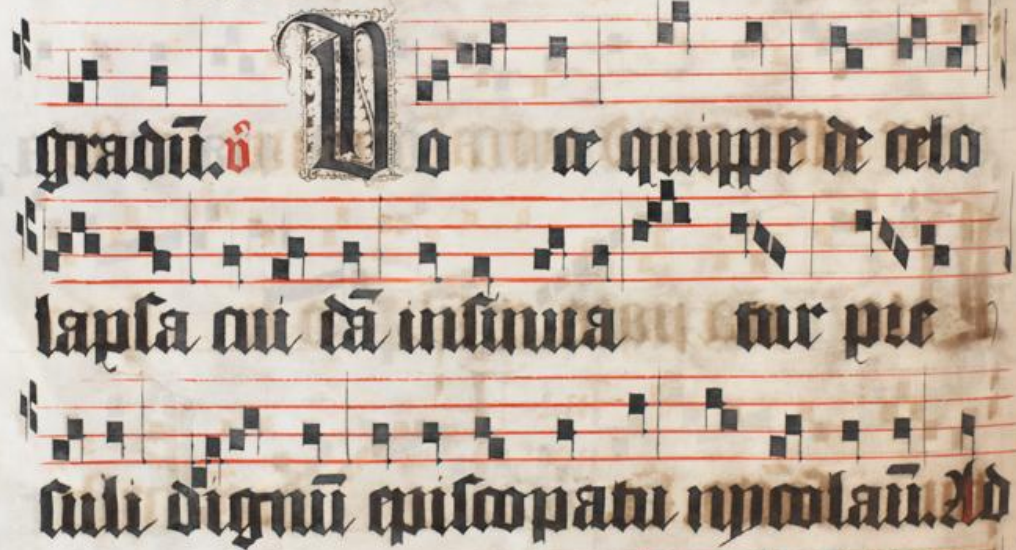 gradū. ℣ Vo ce quippe de celo
lapſa cui dā inſinua tur pre
ſuli dignū epiſcopatu nycolaū. Ad